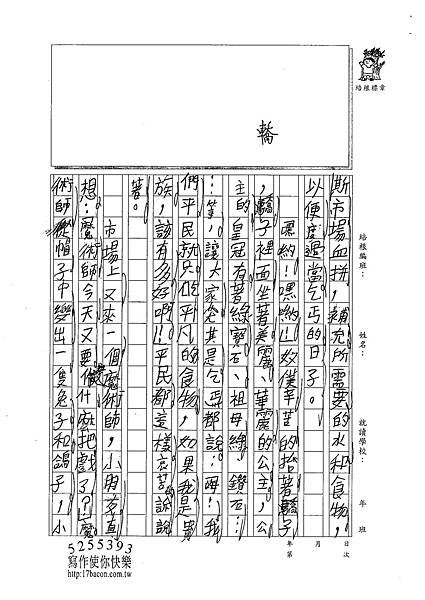 培根標章
轎
培根編班：
姓名：
就讀學校：
年 班
年 月 日
第 次
斯市場血拼，補充所需要的水和食物，
以便度過當乞丐的日子。
嘿喲！嘿喲！奴僕辛苦的抬著轎子
，轎子裡面坐著美麗、華麗的公主，公
主的皇冠有著綠寶石、祖母綠、鑽石…
…等，讓大家尤其是乞丐都說：「哼！我
們平民就只吃平凡的食物，如果我是貴
族，該有多好啊！」平民都這樣訴說
著。
市場上又來一個魔術師，小朋友直
想：「魔術師今天又要做什麼把戲了？」魔
術師從帽子中變出一隻兔子和鴿子，小
5255393
寫作使你快樂
http://17bacon.com.tw